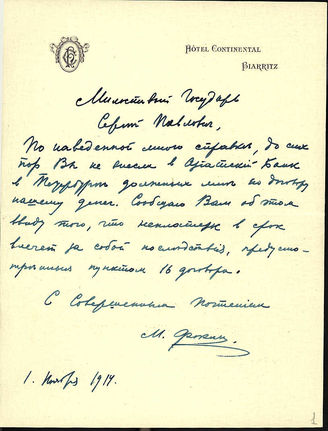 HÔTEL CONTINENTAL
BIARRITZ
Милостивый Государь
Сергей Павлович,
По наведенной мною справке, до сих
пор Вы не внесли в Азиатский Банк
в Петербурге должных мне по договору
нашему денег. Сообщаю Вам об этом
ввиду того, что неплатеж в срок
влечет за собой последствия, предусмо-
тренные пунктом 16 договора.
С Совершенным Почтением
М. Фокин
1. Ноября 1914.
1